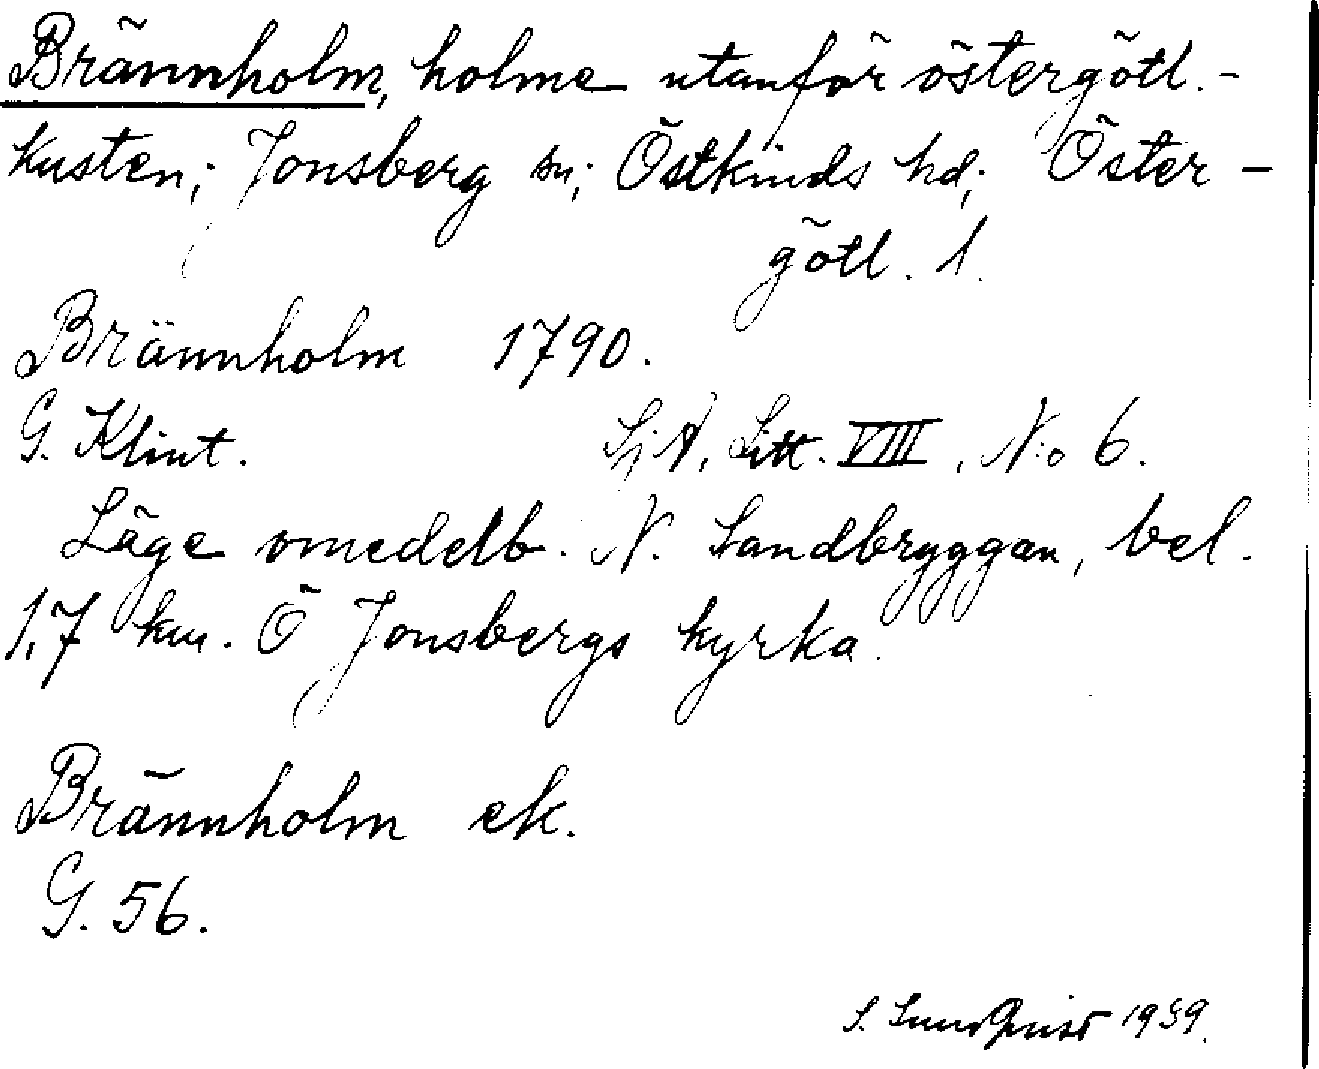 Brännholm, holme utanför östergötl.-
kusten; Jonsberg sn; Östkinds hd; Öster-
götl. l.
Brännholm 1790.
G. Klint. SjA, Litt. VIII, N:o 6.
Läge omedelb. N. Sandbryggan, bel.
1,7 km. Ö Jonsbergs kyrka.
Brännholm ek.
G. 56.
S. Sundqvist 1939.